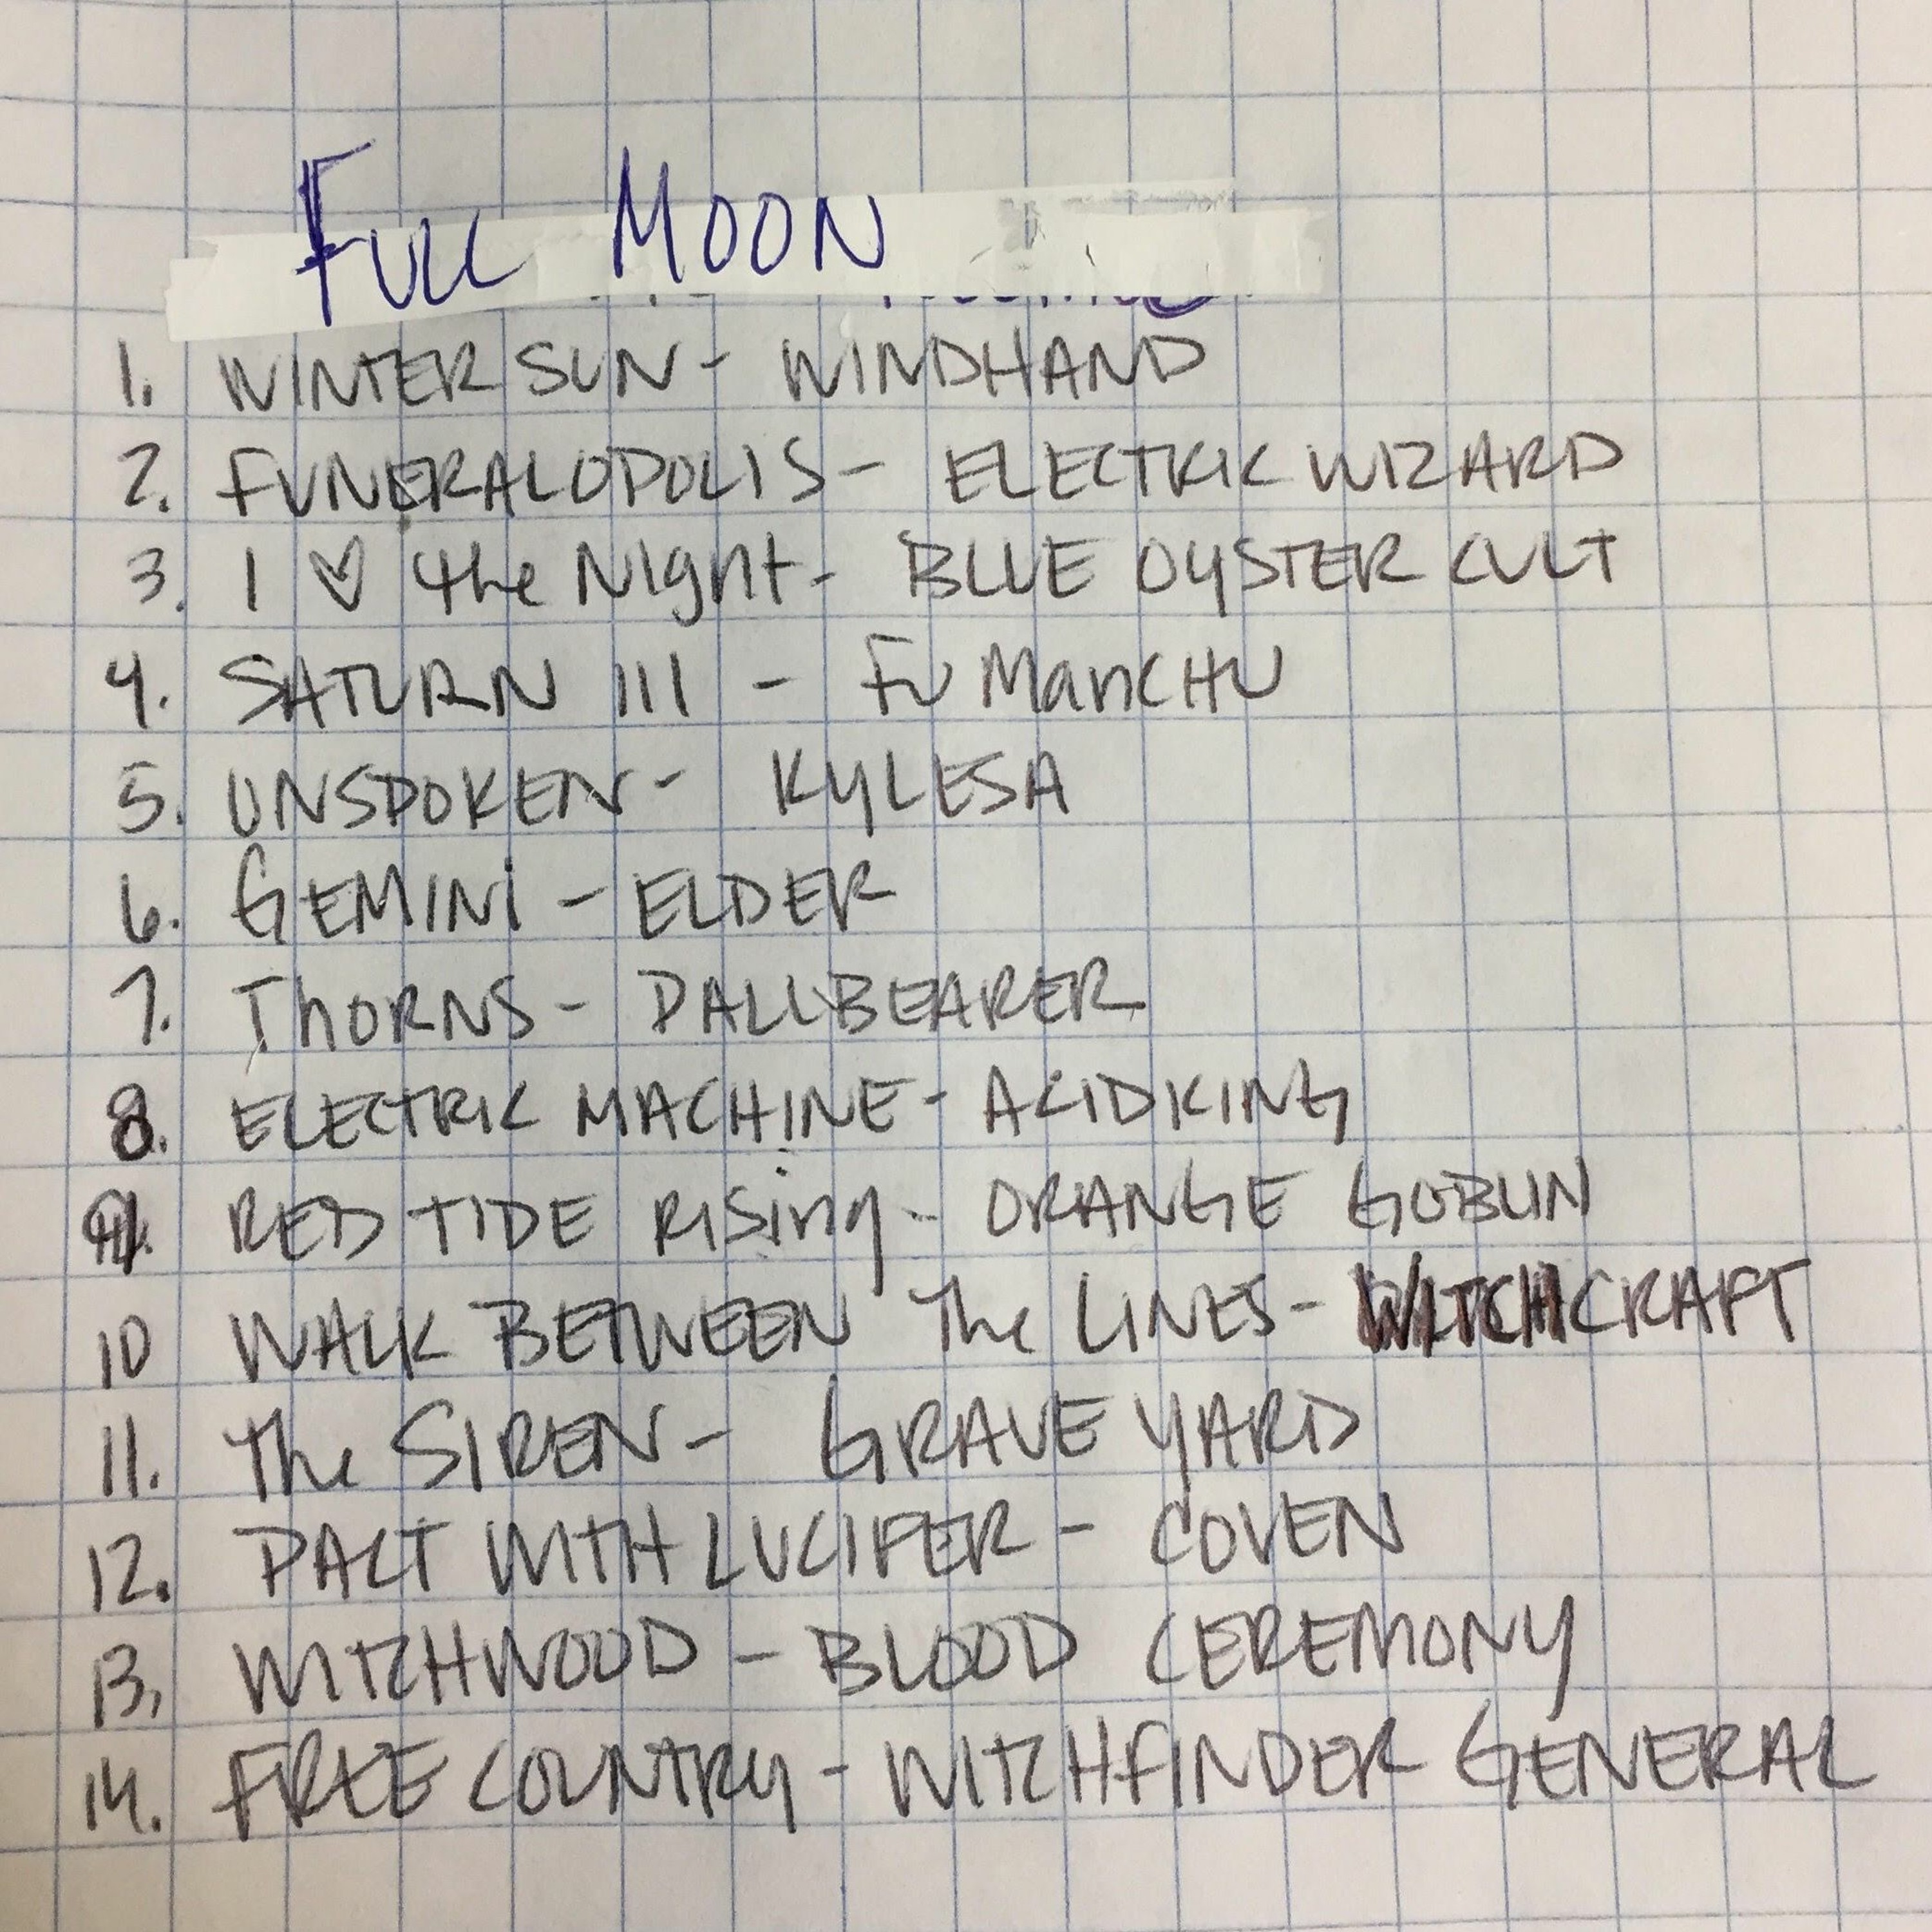 FULL MOON
1. WINTER SUN - WINDHAND
2. FUNERALOPOLIS - ELECTRIC WIZARD
3. I ♡ the Night - BLUE OYSTER CULT
4. SATURN III - FU MANCHU
5. UNSPOKEN - KYLESA
6. GEMINI - ELDER
7. THORNS - PALLBEARER
8. ELECTRIC MACHINE - ACID KING
9. RED TIDE RISing - ORANGE GOBLIN
10 WALK BETWEEN The LINES - WITCHCRAFT
11. The SIREN - GRAVEYARD
12. PACT WITH LUCIFER - COVEN
13. WITCHWOOD - BLOOD CEREMONY
14. FREE COUNTRY - WITCHFINDER GENERAL